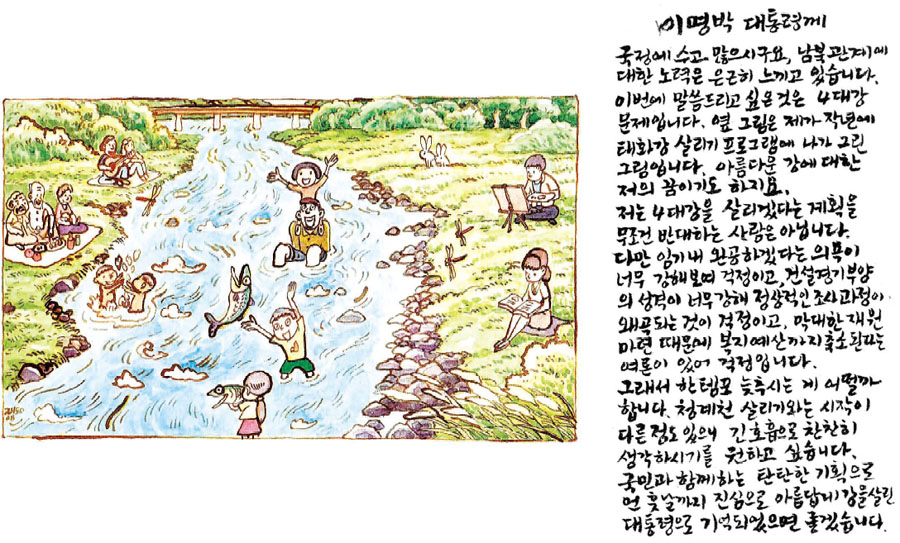 이명박 대통령께
국정에 수고 많으시구요, 남북관계에
대한 노력은 은근히 느끼고 있습니다.
이번에 말씀드리고 싶은 것은 4대강
문제입니다. 옆 그림은 제가 작년에
태화강 살리기 프로그램에 나가 그린
그림입니다. 아름다운 강에 대한
저의 꿈이기도 하지요.
저는 4대강을 살리겠다는 계획을
무조건 반대하는 사람은 아닙니다.
다만 임기내 완공하겠다는 의욕이
너무 강해보여 걱정이고, 건설경기부양
의 성격이 너무 강해 정상적인 조사과정이
왜곡되는 것이 걱정이고, 막대한 재원
마련 때문에 복지예산까지 축소된다는
여론이 있어 걱정입니다.
그래서 한템포 늦추시는 게 어떨까
합니다. 청계천 살리기와는 시작이
다른점도 있으니 긴호흡으로 찬찬히
생각하시기를 원하고 싶습니다.
국민과 함께하는 탄탄한 기획으로
먼 훗날까지 진심으로 아름답게 강을 살린
대통령으로 기억되었으면 좋겠습니다.